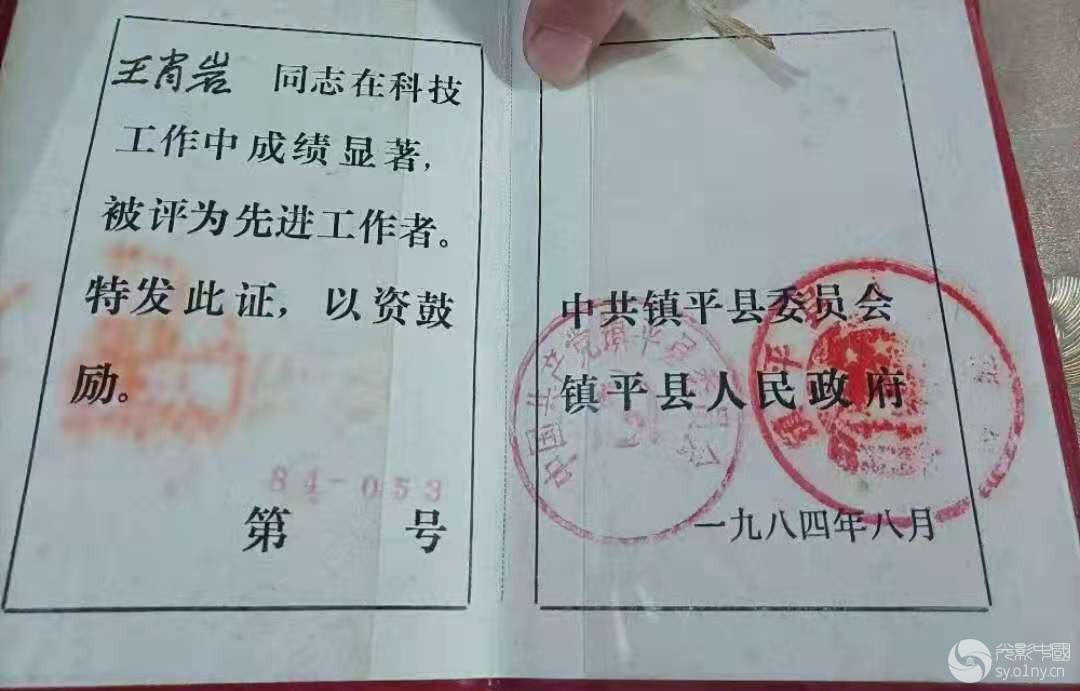 王肖岩 同志在科技
工作中成绩显著,
被评为先进工作者。
特发此证, 以资鼓
励。
84-053
第 号
中共镇平县委员会
镇平县人民政府
一九八四年八月
中国共产党镇平县委员会
光影中國
sy.olny.cn